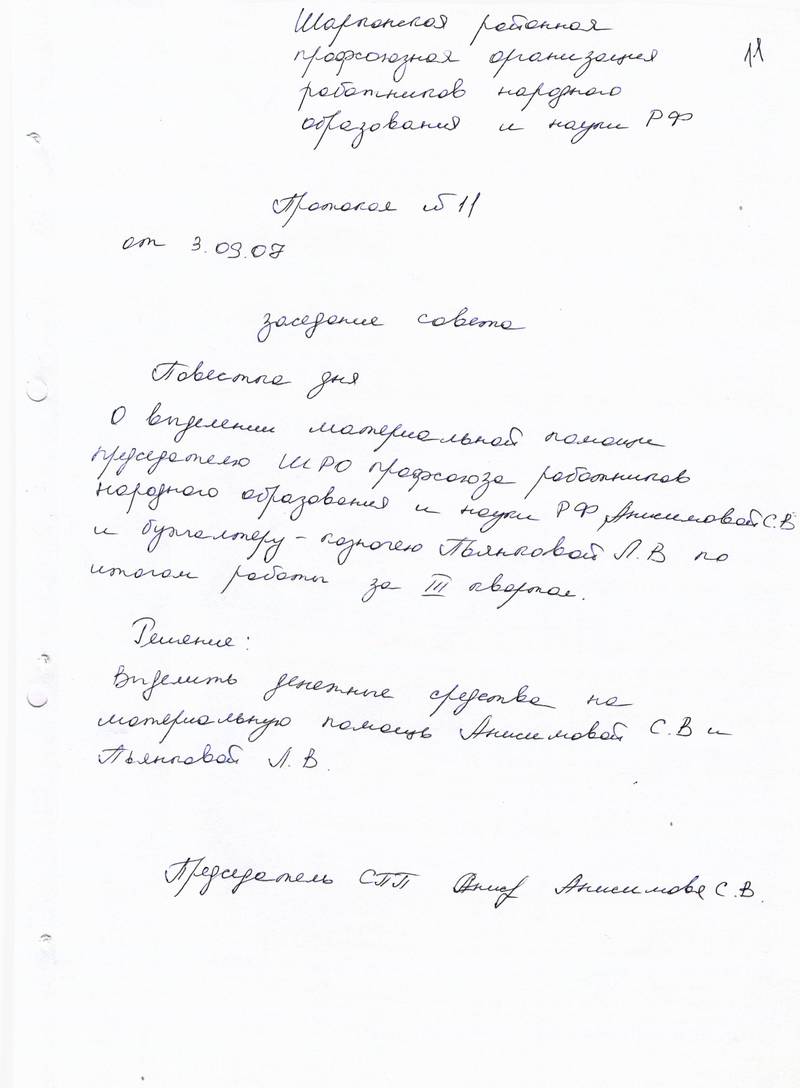 Шарканская районная
профсоюзная организация
11
работников народного
образования и науки РФ
Протокол №11
от 3.09.07
заседание совета
Повестка дня
О выделении материальной помощи
председателю ШРО профсоюза работников
народного образования и науки РФ Анисимовой С.В
и бухгалтеру - казначею Пьянковой Л.В по
итогам работы за III квартал.
Решение:
Выделить денежные средства на
материальную помощь Анисимовой С.В и
Пьянковой Л.В.
Председатель СПП Анисимова С.В.